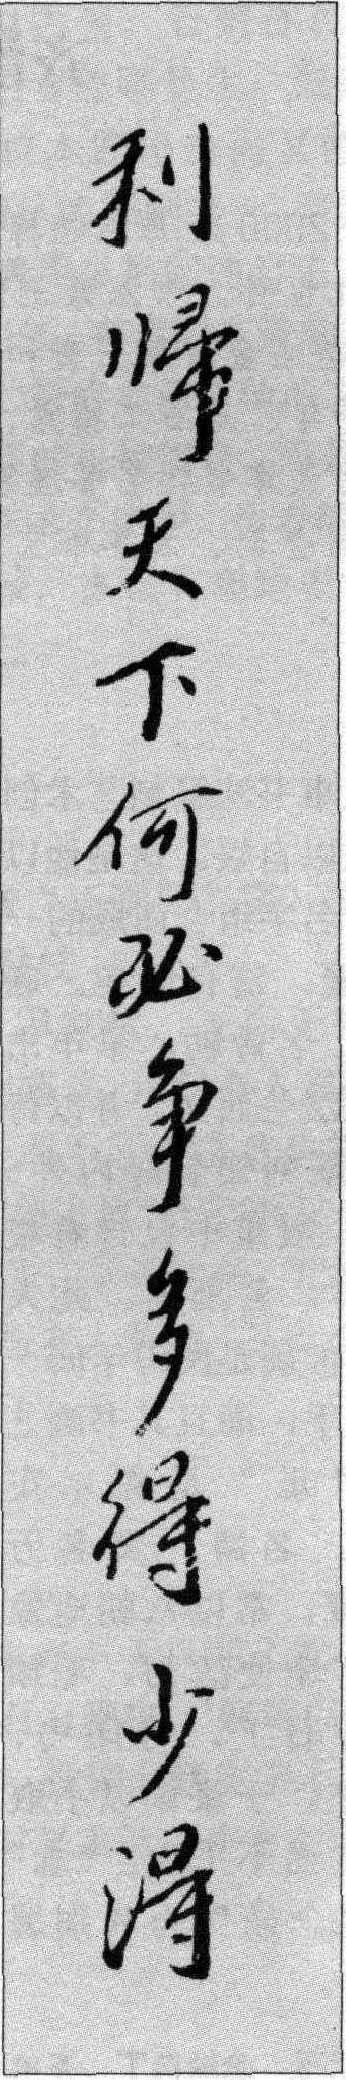 利歸天下何必争多得少得